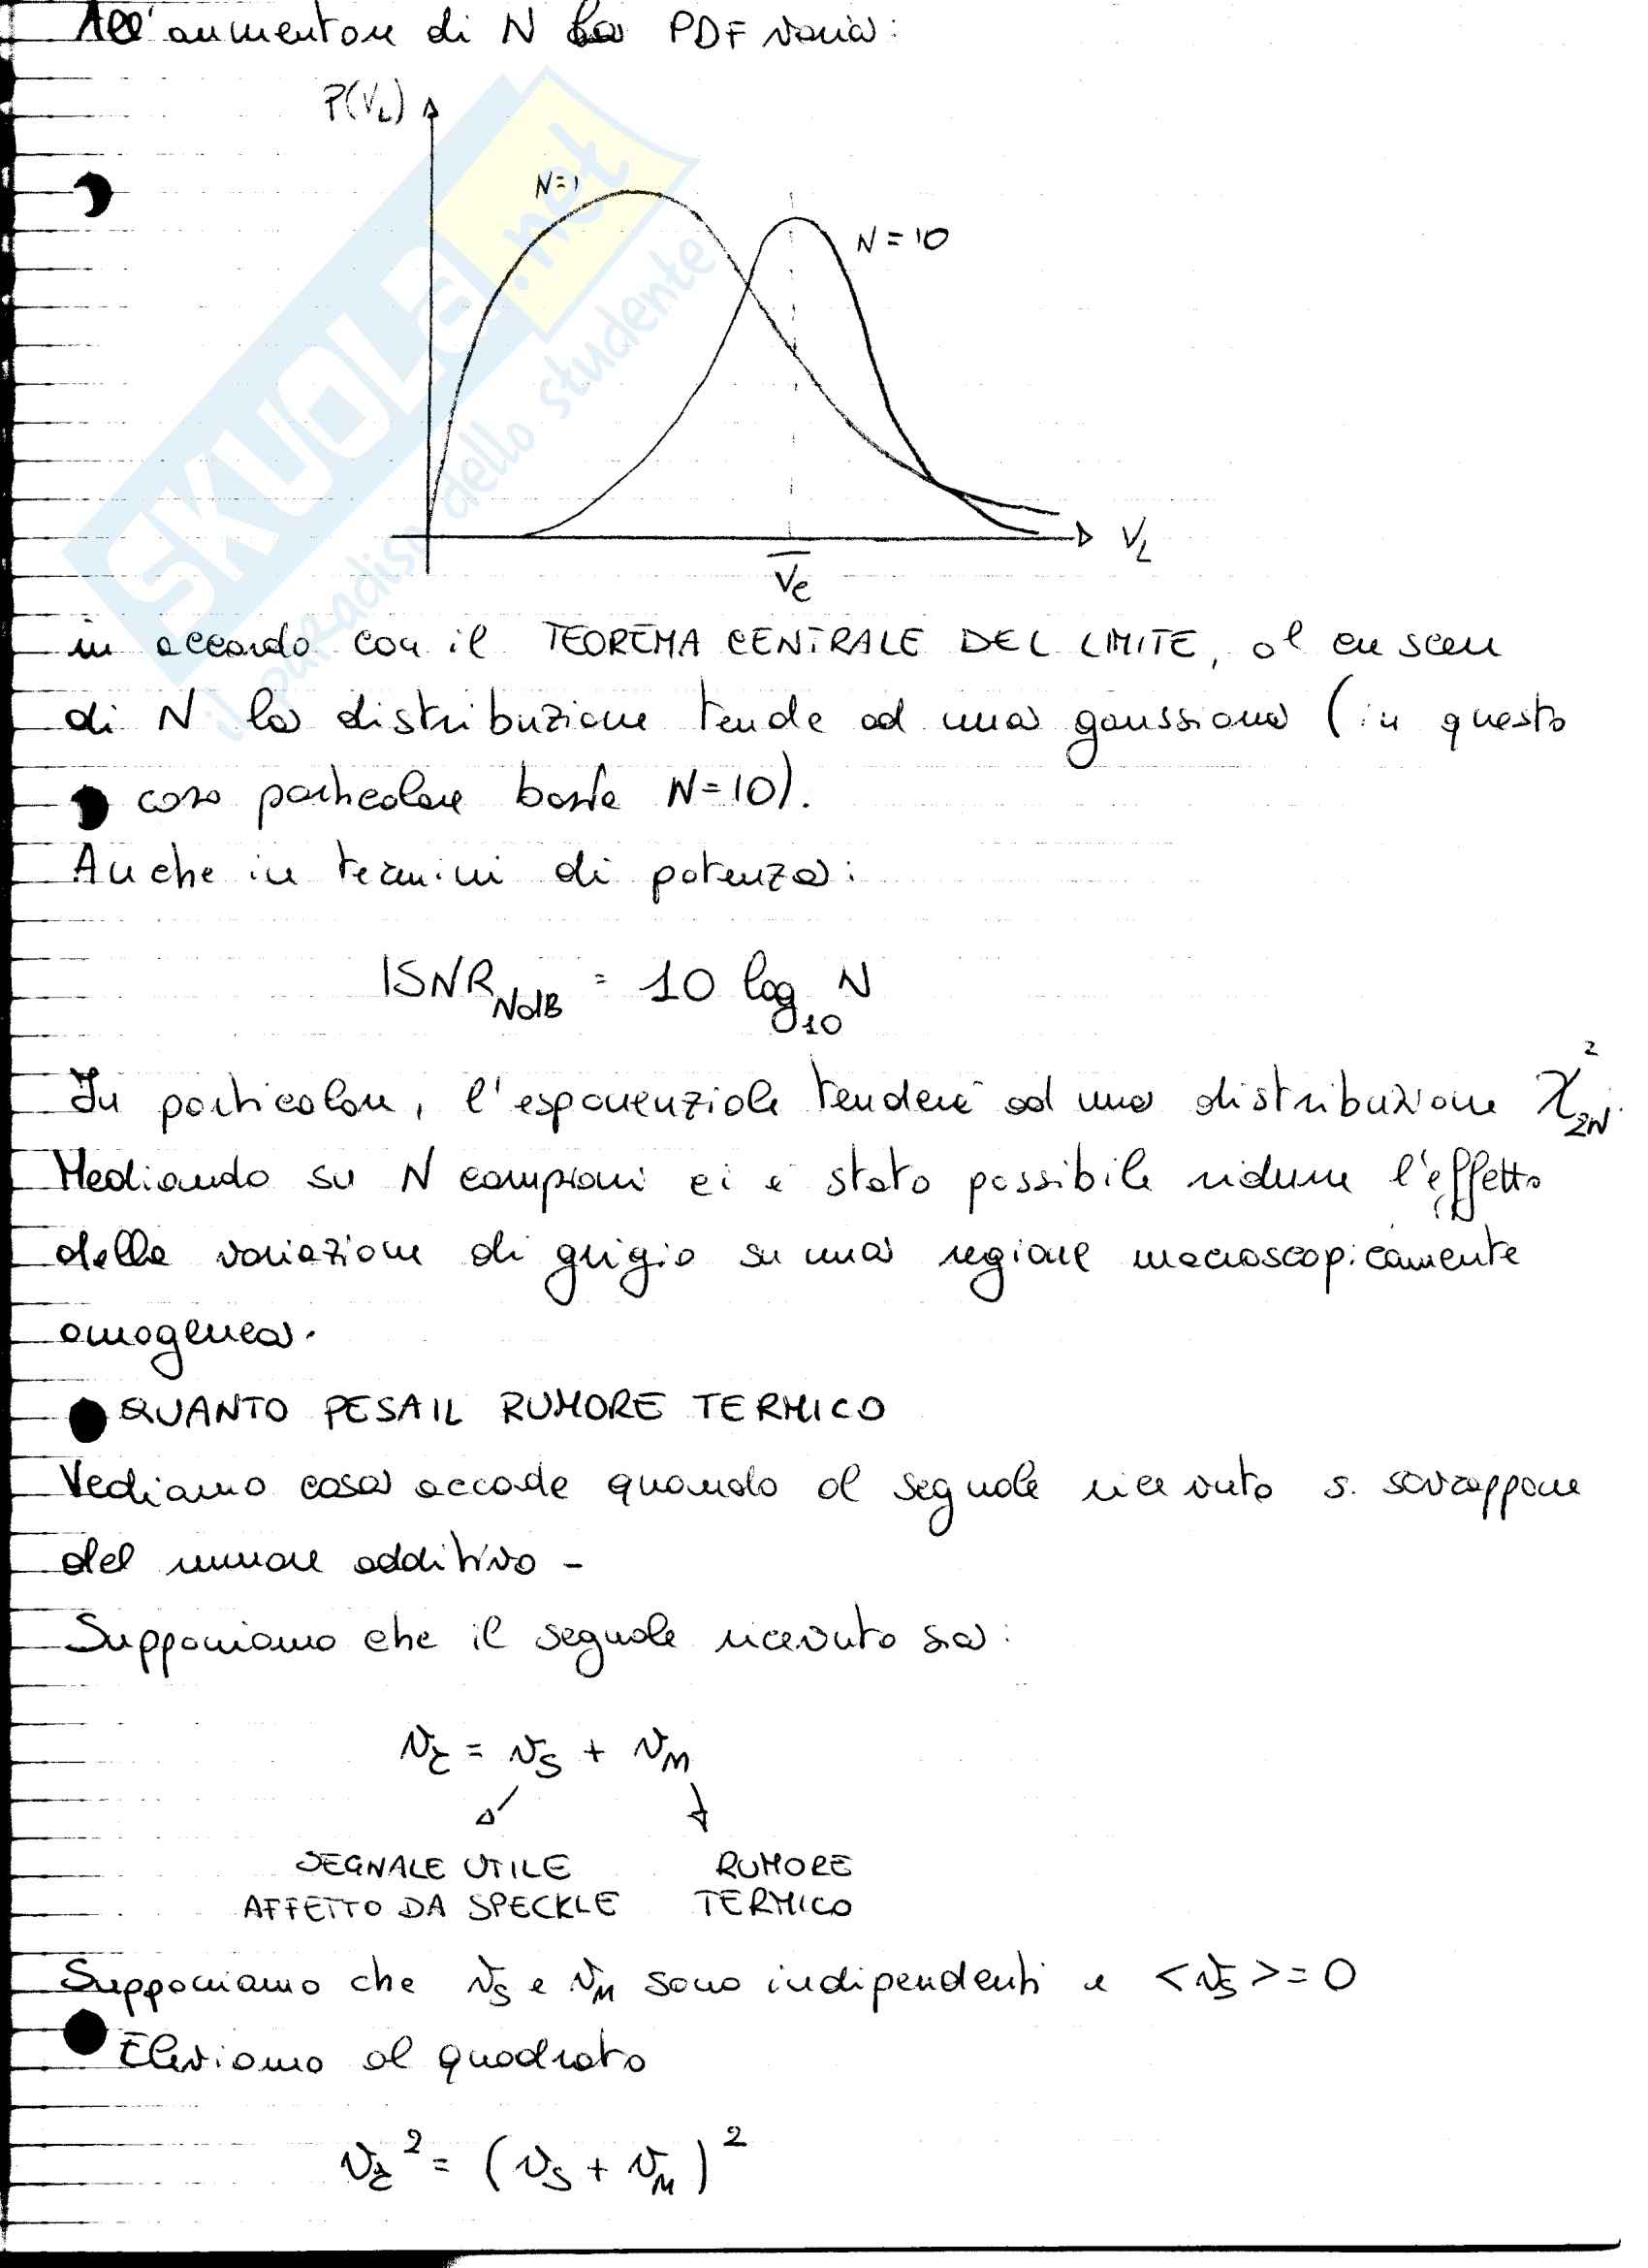 All'aumentare di N la PDF varia:
P(V_L)
N=1
N=10
V_L
V̅_e
in accordo con il TEOREMA CENTRALE DEL LIMITE, al crescere
di N la distribuzione tende ad una gaussiana (in questo
caso particolare basta N=10).
Anche in termini di potenza:
ISNR_NdB = 10 log_10 N
In particolare, l'esponenziale tenderà ad una distribuzione χ²_2N.
Mediando su N campioni ci è stato possibile ridurre l'effetto
della variazione di grigio su una regione macroscopicamente
omogenea.
QUANTO PESA IL RUMORE TERMICO
Vediamo cosa accade quando al segnale ricevuto si sovrappone
del rumore additivo -
Supponiamo che il segnale ricevuto sia:
v_z = v_s + v_M
SEGNALE UTILE RUMORE
AFFETTO DA SPECKLE TERMICO
Supponiamo che v_s e v_M sono indipendenti e <v_s>=0
Eleviamo al quadrato
v_z² = (v_s + v_M)²
SKUOLA.net
il paradiso dello studente